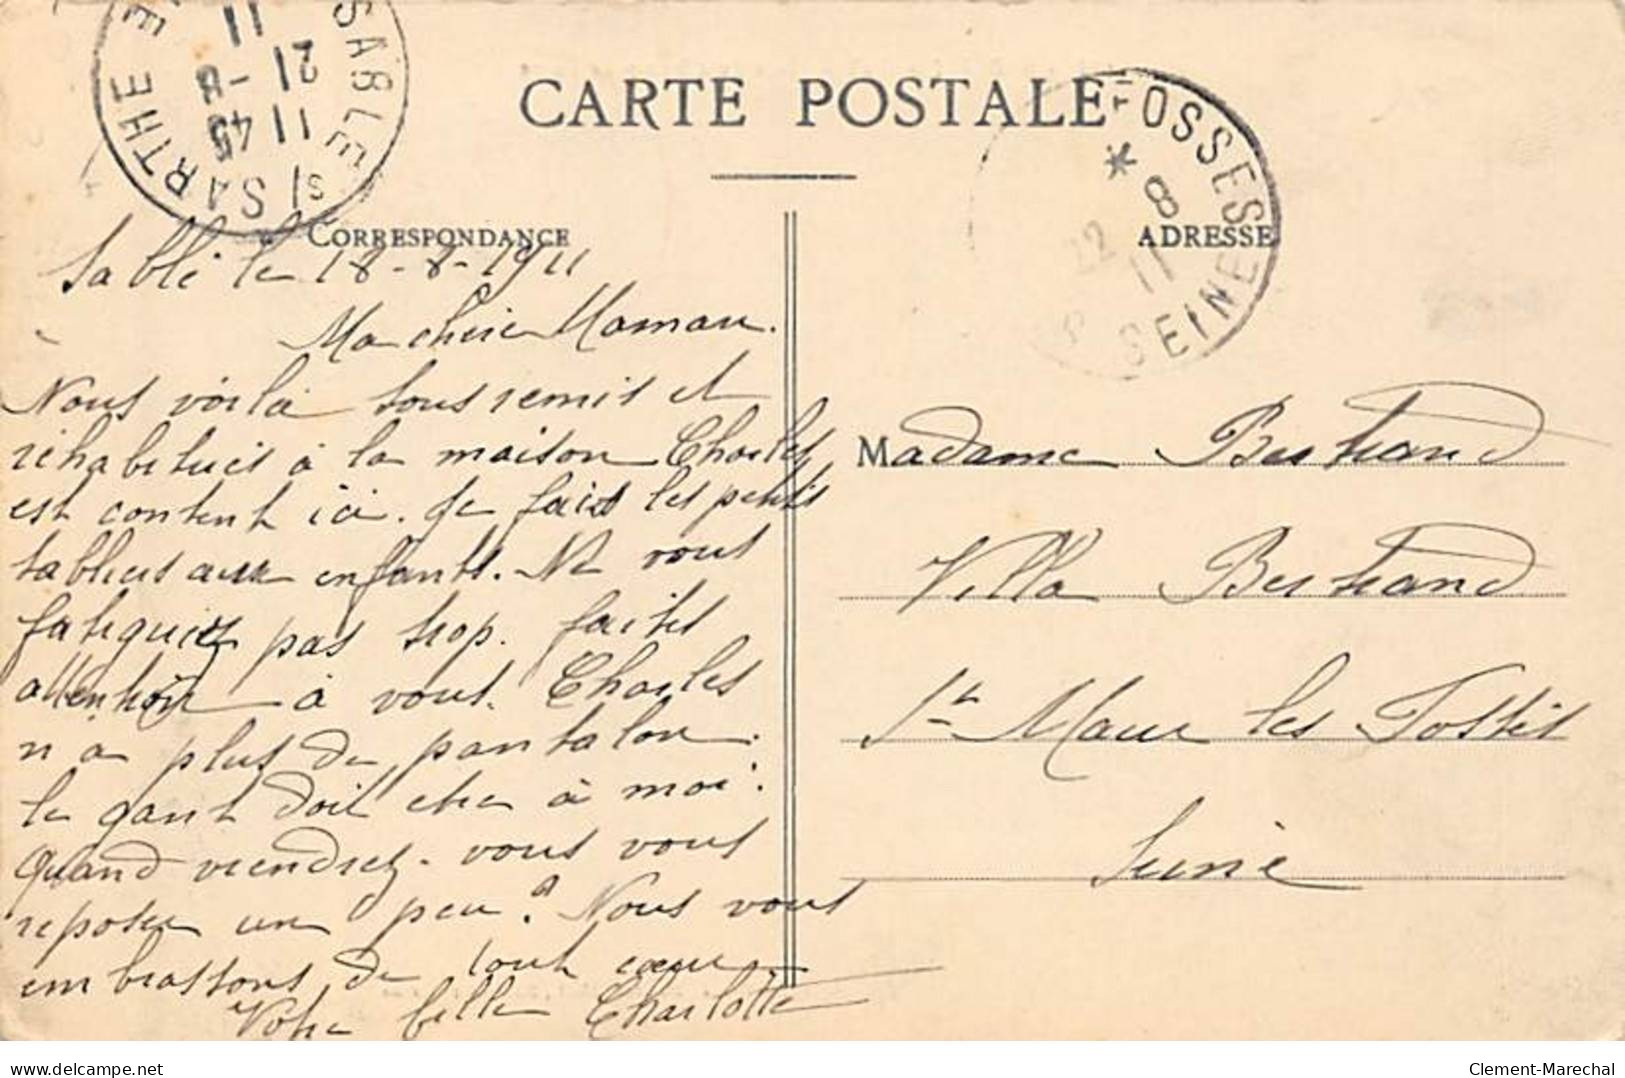 SABLE S/ SARTHE
11 45
21 -8
11
CARTE POSTALE
FOSSES
* 8
22 11
SEINE
CORRESPONDANCE
ADRESSE
Sablé le 18-8-1911
Ma chère Maman.
Nous voilà tous remis et
réhabitués à la maison Charles
est content ici. Je fais les petits
tabliers aux enfants. Ne vous
fatiguiez pas trop. faites
attention à vous. Charles
n a plus de pantalon.
le gant doit etre à moi.
Quand viendrez-vous vous
reposer un peu? Nous vous
embrassons de tout cœur
Votre fille Charlotte
Madame Bertrand
Villa Bertrand
St Maur les Fossés
Seine
delcampe.net
Clement-Marechal